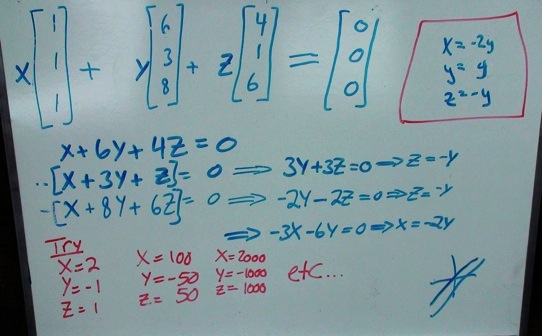 x [1 1 1] + y [6 3 8] + z [4 1 6] = [0 0 0]
x = -2y
y = y
z = -y
x + 6y + 4z = 0
-[x + 3y + z] = 0 ⇒ 3y + 3z = 0 ⇒ z = -y
-[x + 8y + 6z] = 0 ⇒ -2y - 2z = 0 ⇒ z = -y
⇒ -3x - 6y = 0 ⇒ x = -2y
Try
x = 2
y = -1
z = 1
x = 100
y = -50
z = 50
x = 2000
y = -1000
z = 1000
etc...